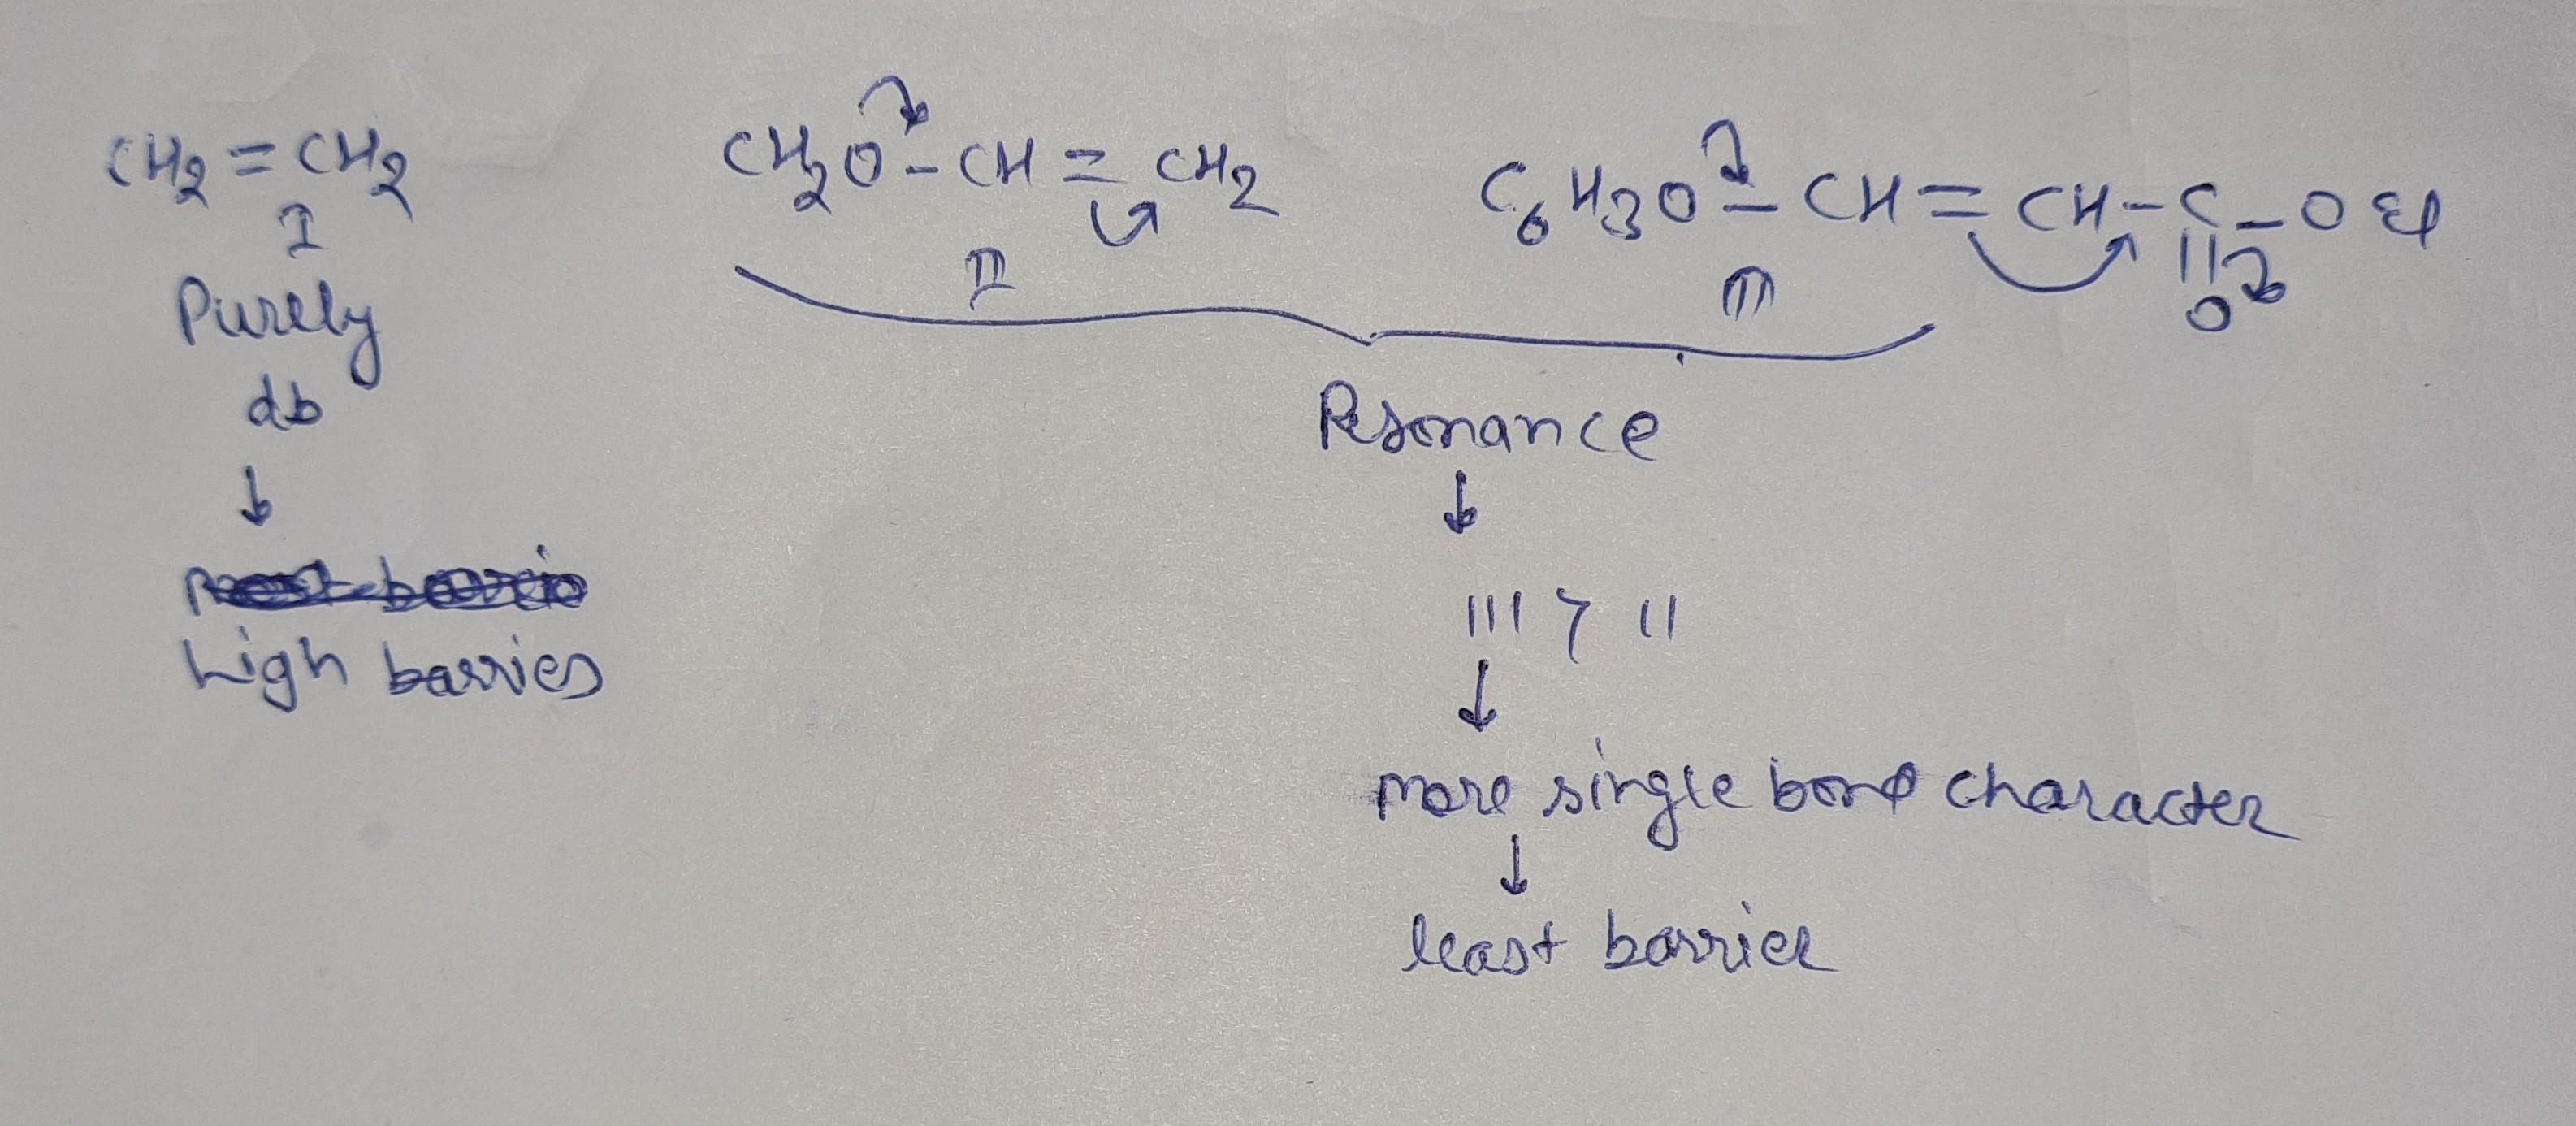 CH2 = CH2
I
Purely
db
↓
High barrier
CH2O - CH = CH2
II
C6H3O - CH = CH - C - OEt
||
O
III
Resonance
↓
III > II
↓
more single bond character
↓
least barrier